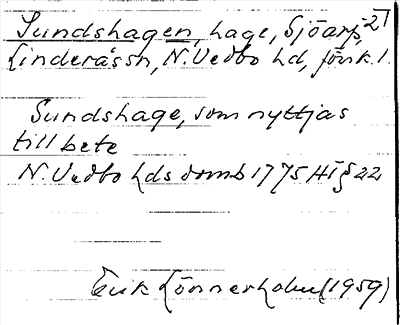 Sundshagen, hage, Sjöarp, 2¹
Linderås sn, N. Vedbo hd, Jönk. l.
Sundshage, som nyttjas
till bete
N. Vedbo hds domb 1775 HT § 22
Erik Lönnerholm (1959)